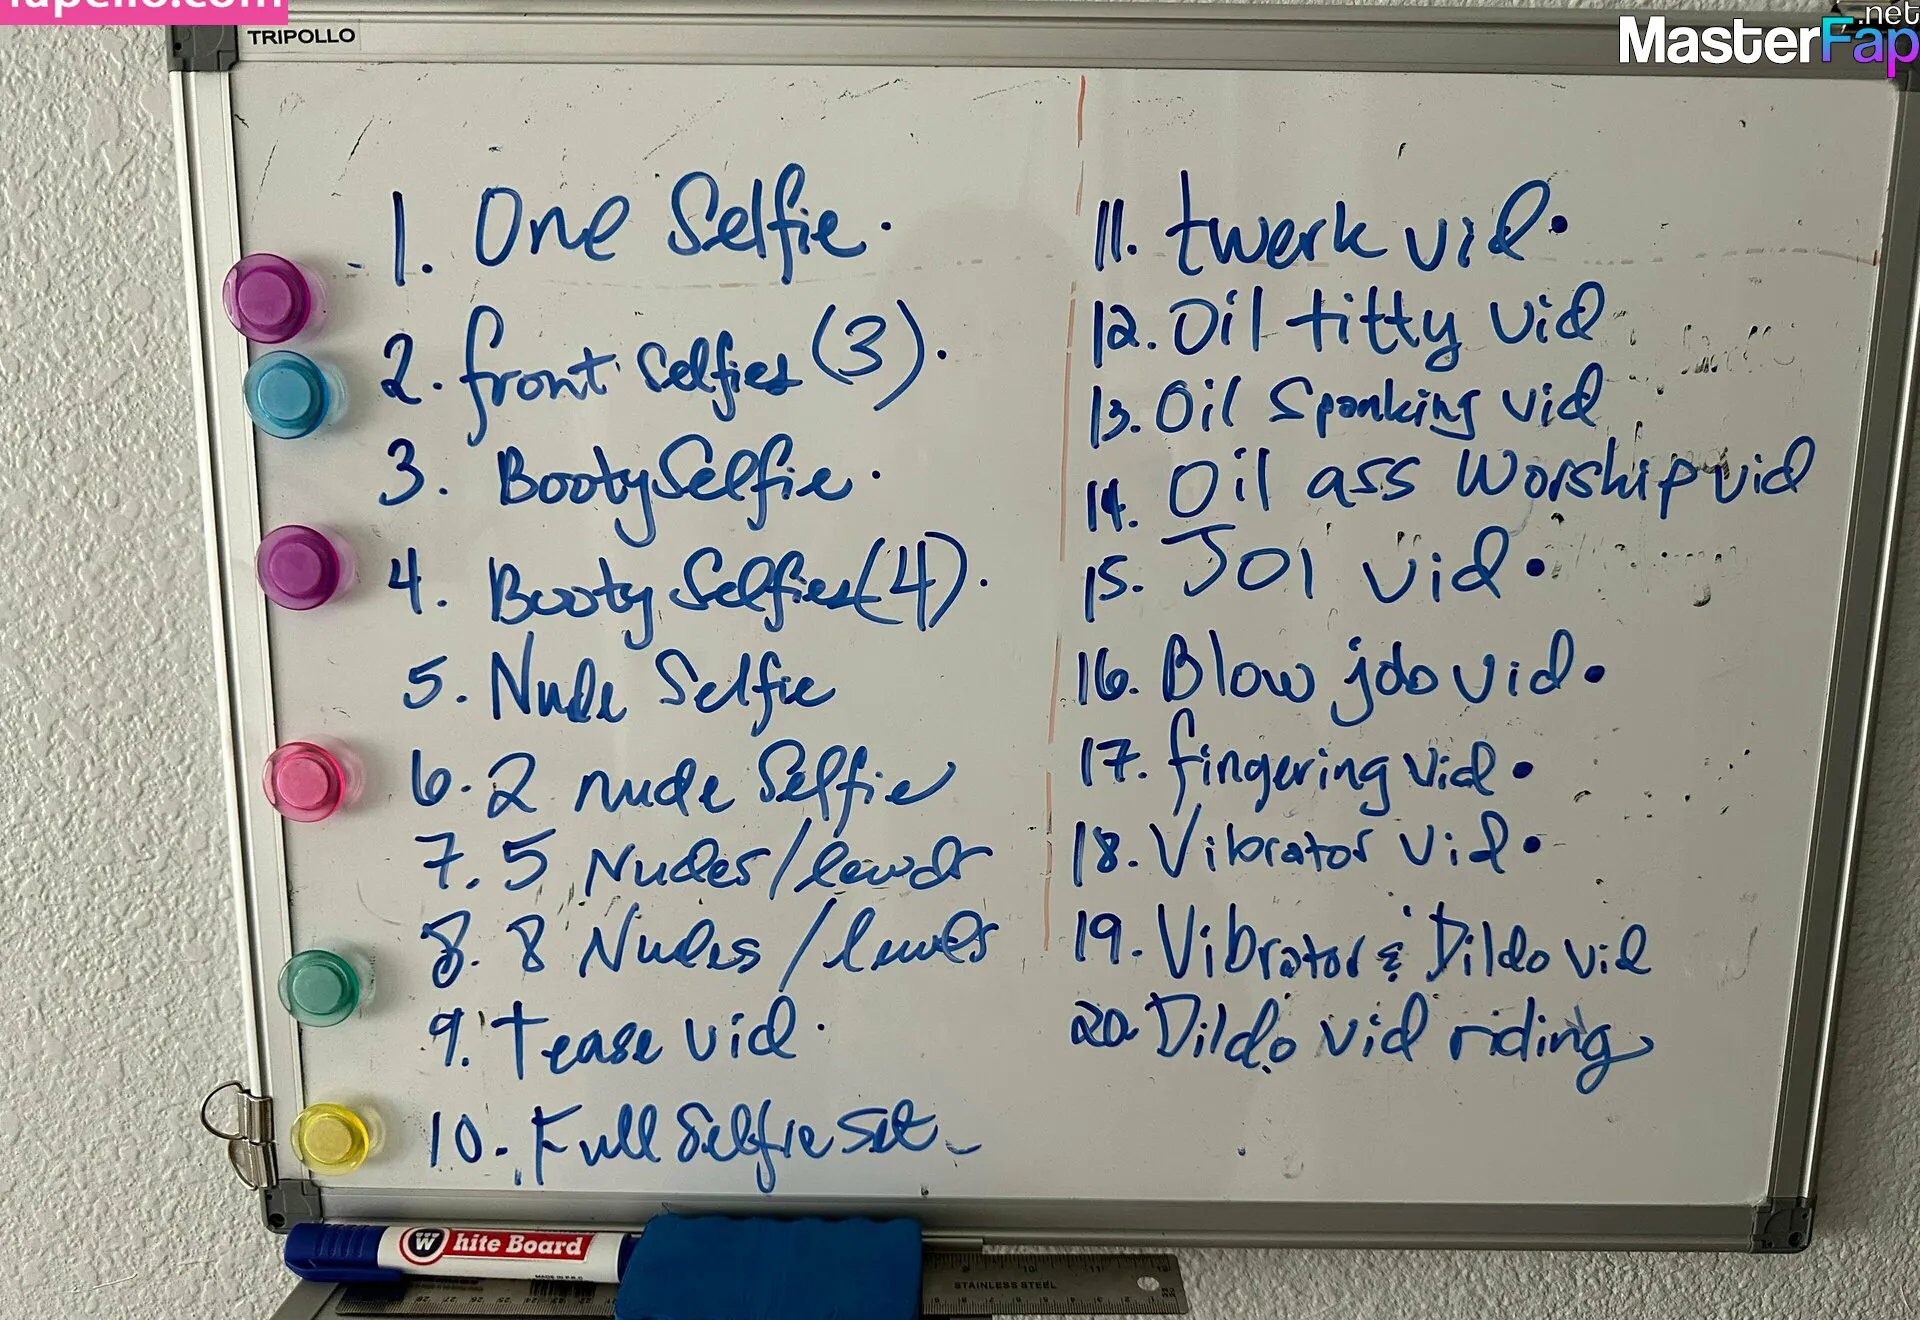 fapello.com
.net
MasterFap
TRIPOLLO
1. One Selfie.
2. front selfies (3).
3. Booty Selfie.
4. Booty Selfies (4).
5. Nude Selfie
6. 2 nude Selfie
7. 5 Nudes/lewds
8. 8 Nudes/lewds
9. Tease vid.
10. Full Selfie Set
11. twerk vid.
12. Oil titty vid
13. Oil Spanking vid
14. Oil ass worship vid
15. JOI vid.
16. Blow job vid.
17. fingering vid.
18. Vibrator vid.
19. Vibrator & Dildo vid
20. Dildo vid riding
White Board
STAINLESS STEEL